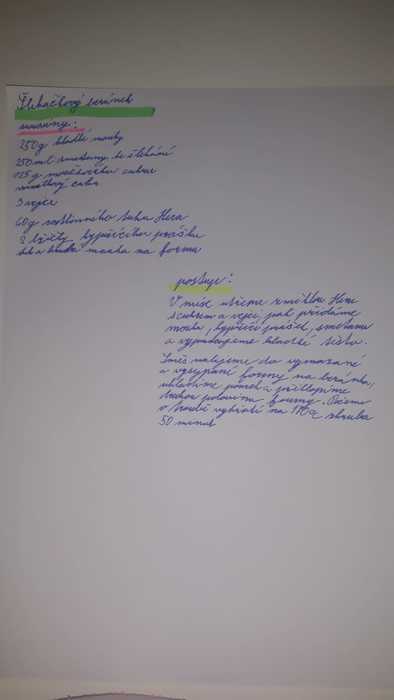 Šlehačkový beránek
suroviny:
250g hladké mouky
250ml smetany ke šlehání
125 g moučkového cukru
vanilkový cukr
3 vejce
60g rostlinného tuku Hera
2 lžičky kypřícího prášku
tuk a hrubá mouka na formu
postup:
V míse utřeme změklou Heru
s cukrem a vejci, pak přidáme
mouku, kypřící prášek, smetanu
a vypracujeme hladké těsto.
Směs nalijeme do vymazané
a vysypané formy na beránka,
uhladíme povrch a přiklopíme
druhou polovinu formy. Pečeme
v troubě vyhřáté na 170° zhruba
50 minut